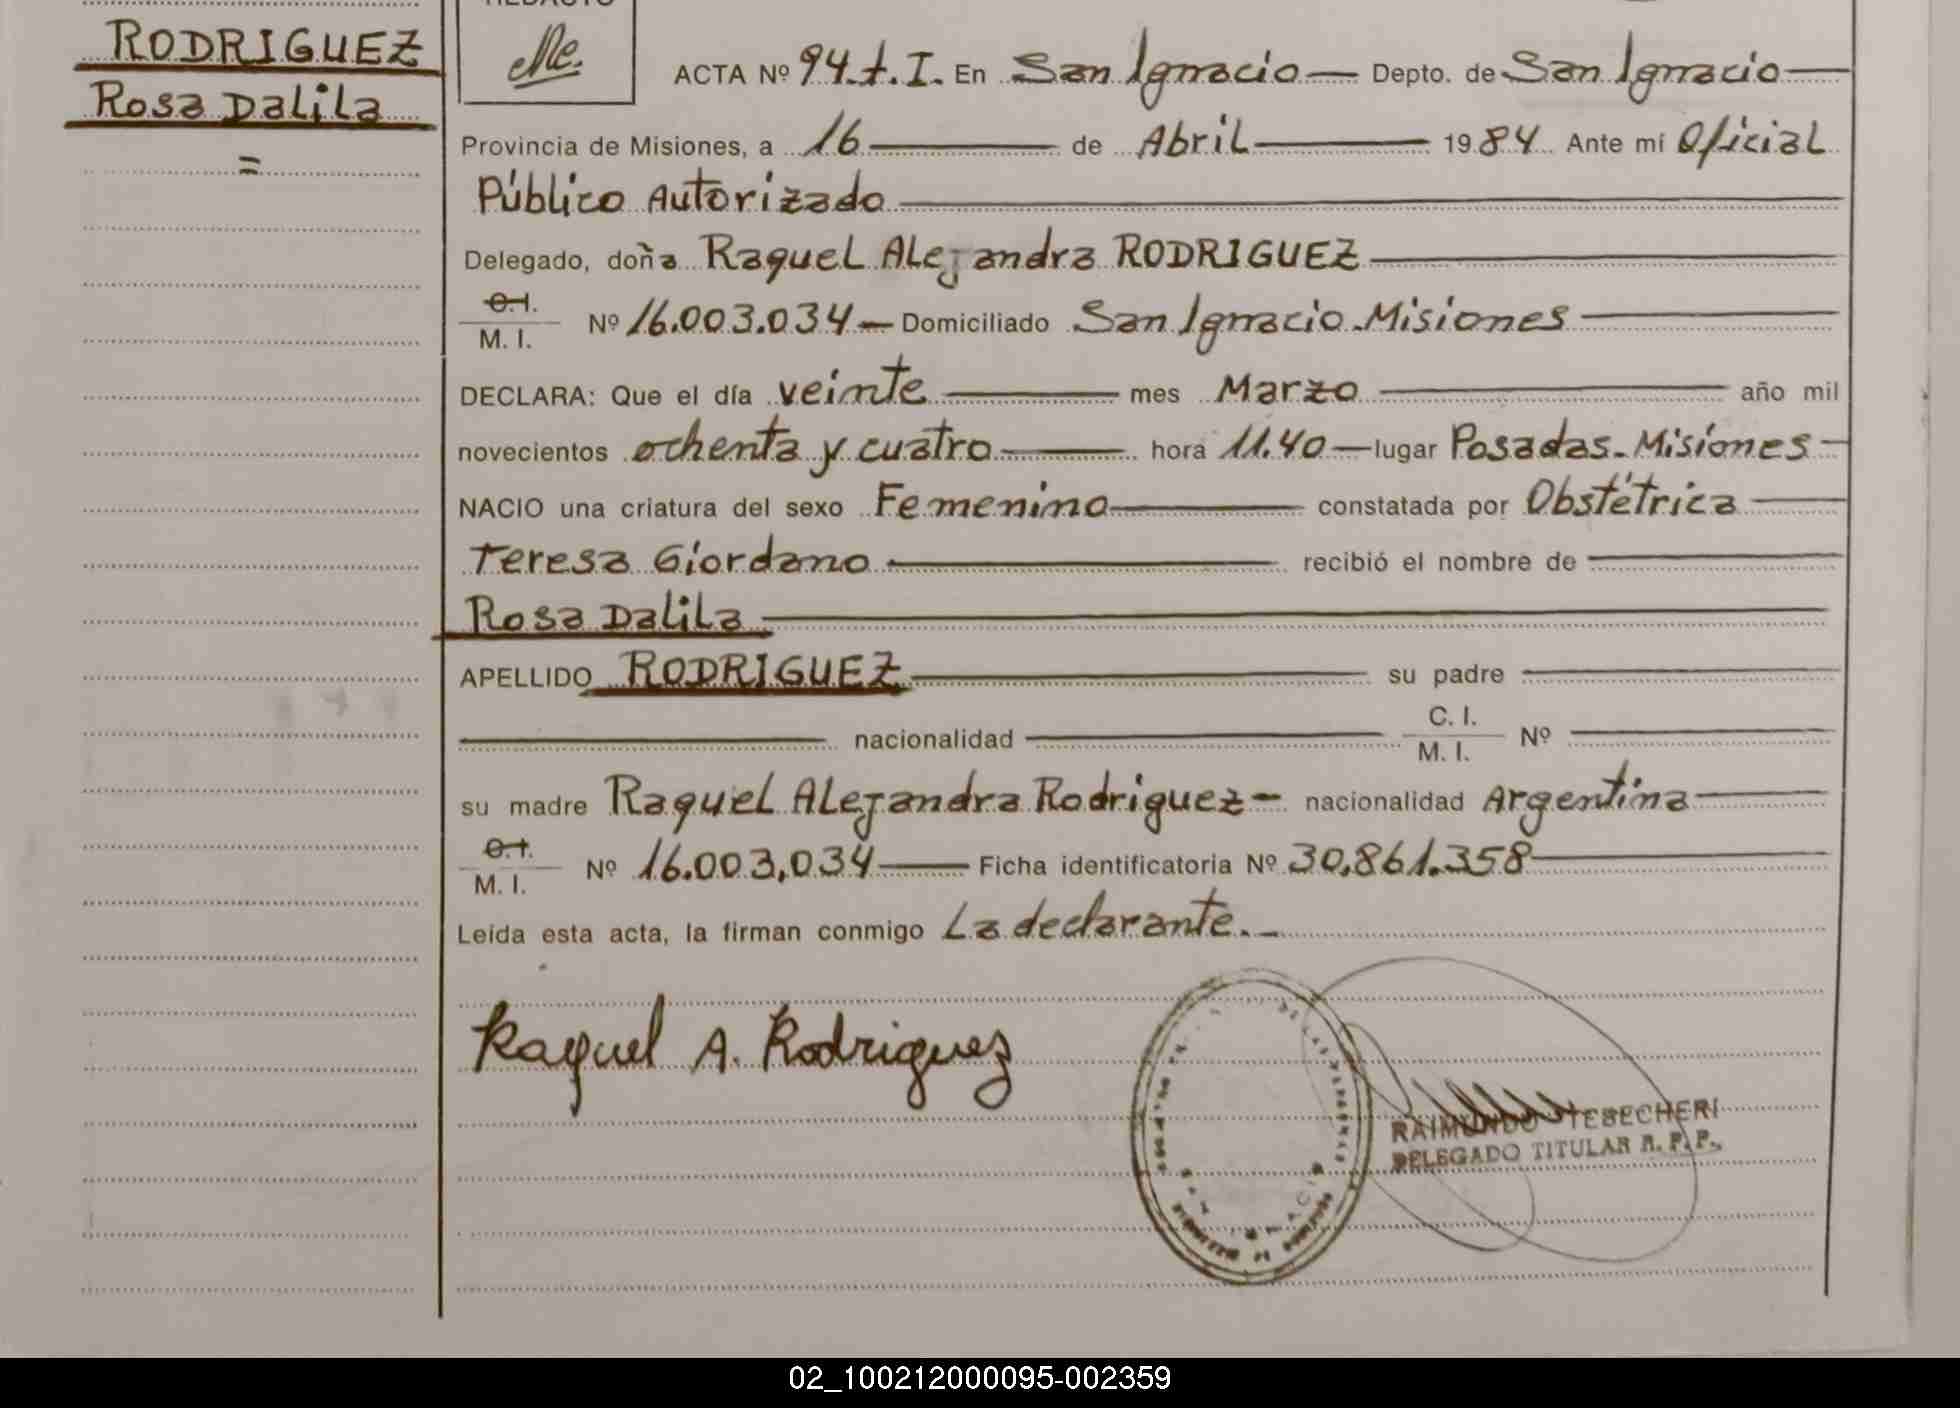 RODRIGUEZ
Rosa Dalila
=
REDACTO
ACTA Nº 94.t.I. En San Ignacio — Depto. de San Ignacio —
Provincia de Misiones, a 16 — de Abril — 1984 Ante mí Oficial
Público Autorizado —
Delegado, doña Raquel Alejandra RODRIGUEZ —
C.I.
M. I. Nº 16.003.034 — Domiciliado San Ignacio. Misiones —
DECLARA: Que el día veinte — mes Marzo — año mil
novecientos ochenta y cuatro — hora 11.40 — lugar Posadas. Misiones —
NACIO una criatura del sexo Femenino — constatada por Obstétrica —
Teresa Giordano — recibió el nombre de —
Rosa Dalila —
APELLIDO RODRIGUEZ — su padre —
— nacionalidad — C. I. Nº —
M. I.
su madre Raquel Alejandra Rodriguez - nacionalidad Argentina —
C.I.
M. I. Nº 16.003,034 — Ficha identificatoria Nº 30.861.358 —
Leída esta acta, la firman conmigo La declarante. -
Raquel A. Rodriguez
RAIMUNDO TEBECHERI
DELEGADO TITULAR R. P. P.
02_100212000095-002359